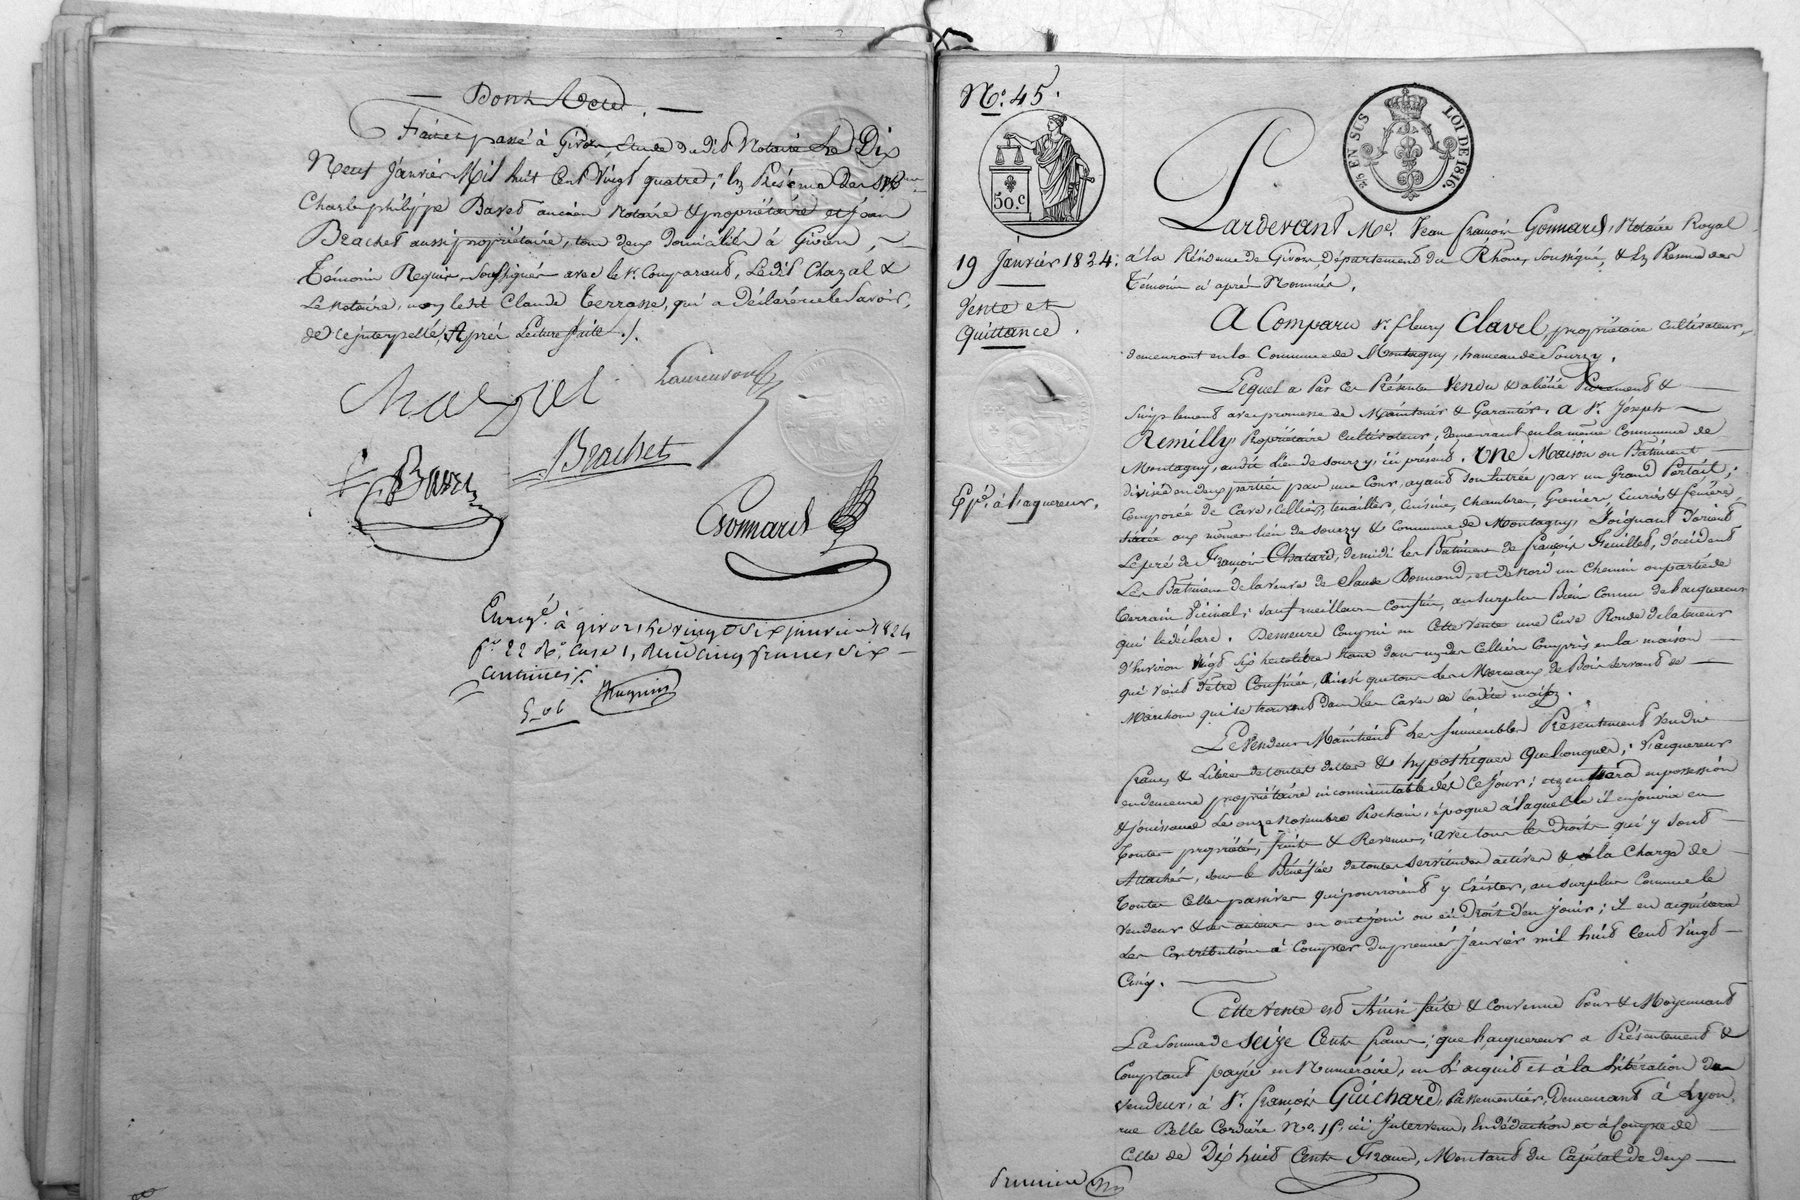 Dont Acte.
Fait et passé à Givors, Étude dudit Notaire Le Dix
Neuf Janvier Mil huit Cent Vingt quatre, En Présence Des Srs
Charle philippe Baret ancien Notaire & propriétaire et Jean
Brachet aussi propriétaire, tous deux domiciliés à Givors,
Témoins Requis, Soussignés avec le Sr. Comparant, Ledit Chazal &
Le Notaire, non ledit Claude Terrasse, qui a déclaré ne le Savoir,
de ce interpellé, Après Lecture faite ./.
Chazal
Brachet
Baret
Gonnard
Enregé. à givors, le vingt Six janvier 1824
fo. 22 Ro. Case 1, Reçu cinq francs Six
centimes
5-06
Nº. 45.
50.c
25 EN SUS
LOI DE 1816.
19 Janvier 1824.
Vente et
Quittance.
Epé. à l'aquereur.
Pardevant Me. Jean françois Gonnard, Notaire Royal
à la Résidence de Givors, Département du Rhône, Soussigné, & En Présence des
Témoins ci après Nommés,
A Comparu Sr. fleury Clavel propriétaire Cultivateur,
demeurant en la Commune de Montagny, hameau de Sourzy,
Lequel a Par ces Présentes Vendu & aliéné Purement &
Simplement avec promesse de Maintenir & Garantir, a Sr. Joseph
Remilly, Propriétaire Cultivateur, demeurant en la même Commune de
Montagny, audit Lieu de Sourzy, ici présent. Une Maison ou Bâtiment
divisé en deux parties par une Cour, ayant son Entrée par un Grand Portail;
Composée de Cave, Cellier, tenailler, Cuisine, Chambre, Greniers, Ecuries & fenières,
Située aux mêmes lieu de Sourzy & Commune de Montagny, Joignant d'orient
Le pré de François Chatard, de midi les Bâtimens de françois Feuillet, d'occident
Les Bâtimens de la veuve de Claude Bonnand, et de Nord un Chemin ou partie de
terrain Vicinal; Sauf meilleurs Confins, au surplus Bien Connu de l'aquereur
qui le déclare. Demeure Compris en Cette Vente une Cuve Ronde de la teneur
d'Environ Vingt Six hectolitres étant dans un des Celliers Compris en la maison
qui vient d'être Confinée, Ainsi que tous les Morceaux de Bois Servant de
Marchons qui se trouvent dans les Caves de ladite maison.
Le Vendeur Maintient les immeubles Présentement Vendus
francs & Libres de toutes dettes & hypothèques Quelconques; l'aquereur
en demeure propriétaire incommutable dès Ce Jour; et en entrera en possession
& jouissance Le onze Novembre Prochain, époque à laquelle il en jouira en
toutes propriétés, fruits & Revenus, avec tous les Droits qui y sont
Attachés, sous le Bénéfice de toutes servitudes actives & à la Charge de
toutes Celles passives qui pourroient y Exister, au surplus Comme le
Vendeur & ses auteurs en ont joui ou eu Droit d'en jouir; il en acquittera
Les Contributions à Compter du premier Janvier mil huit Cent Vingt
Cinq.
Cette Vente est Ainsi faite & Convenue Pour & Moyennant
La Somme de Seize Cents francs; que l'aquereur a Présentement &
Comptant payée en Numéraire, en L'acquit et à la Libération du
Vendeur, à Sr. françois Guichard, Passementier, Demeurant à Lyon,
rue Belle Cordière No. 15, ici Intervenu, En déduction et à Compte de
Celle de Dix huit Cents Francs, Montant du Capital de deux